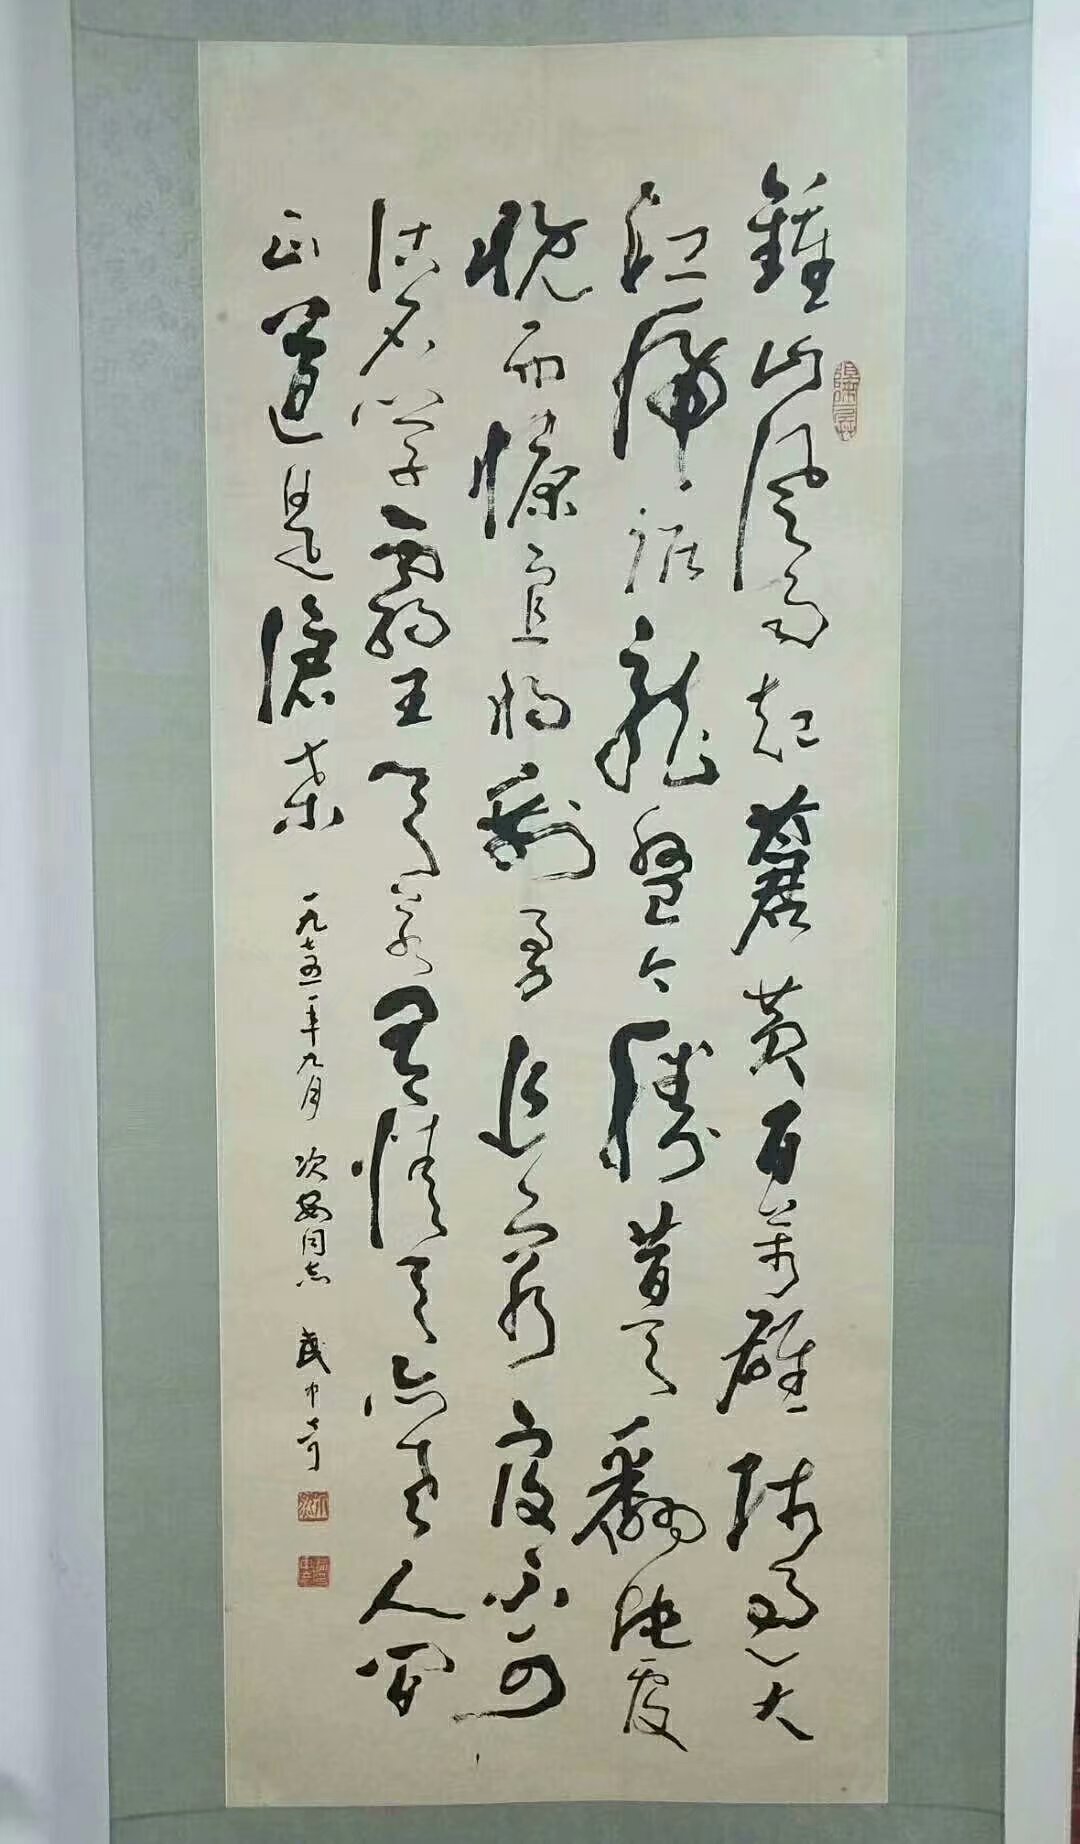 鍾山風雨起蒼黄百萬雄师過大
江虎踞龍盤今勝昔天翻地覆
慨而慷宜將剩勇追窮寇不可
沽名學霸王天若有情天亦老人間
正道是滄桑 一九七五年九月 次安同志 武中奇